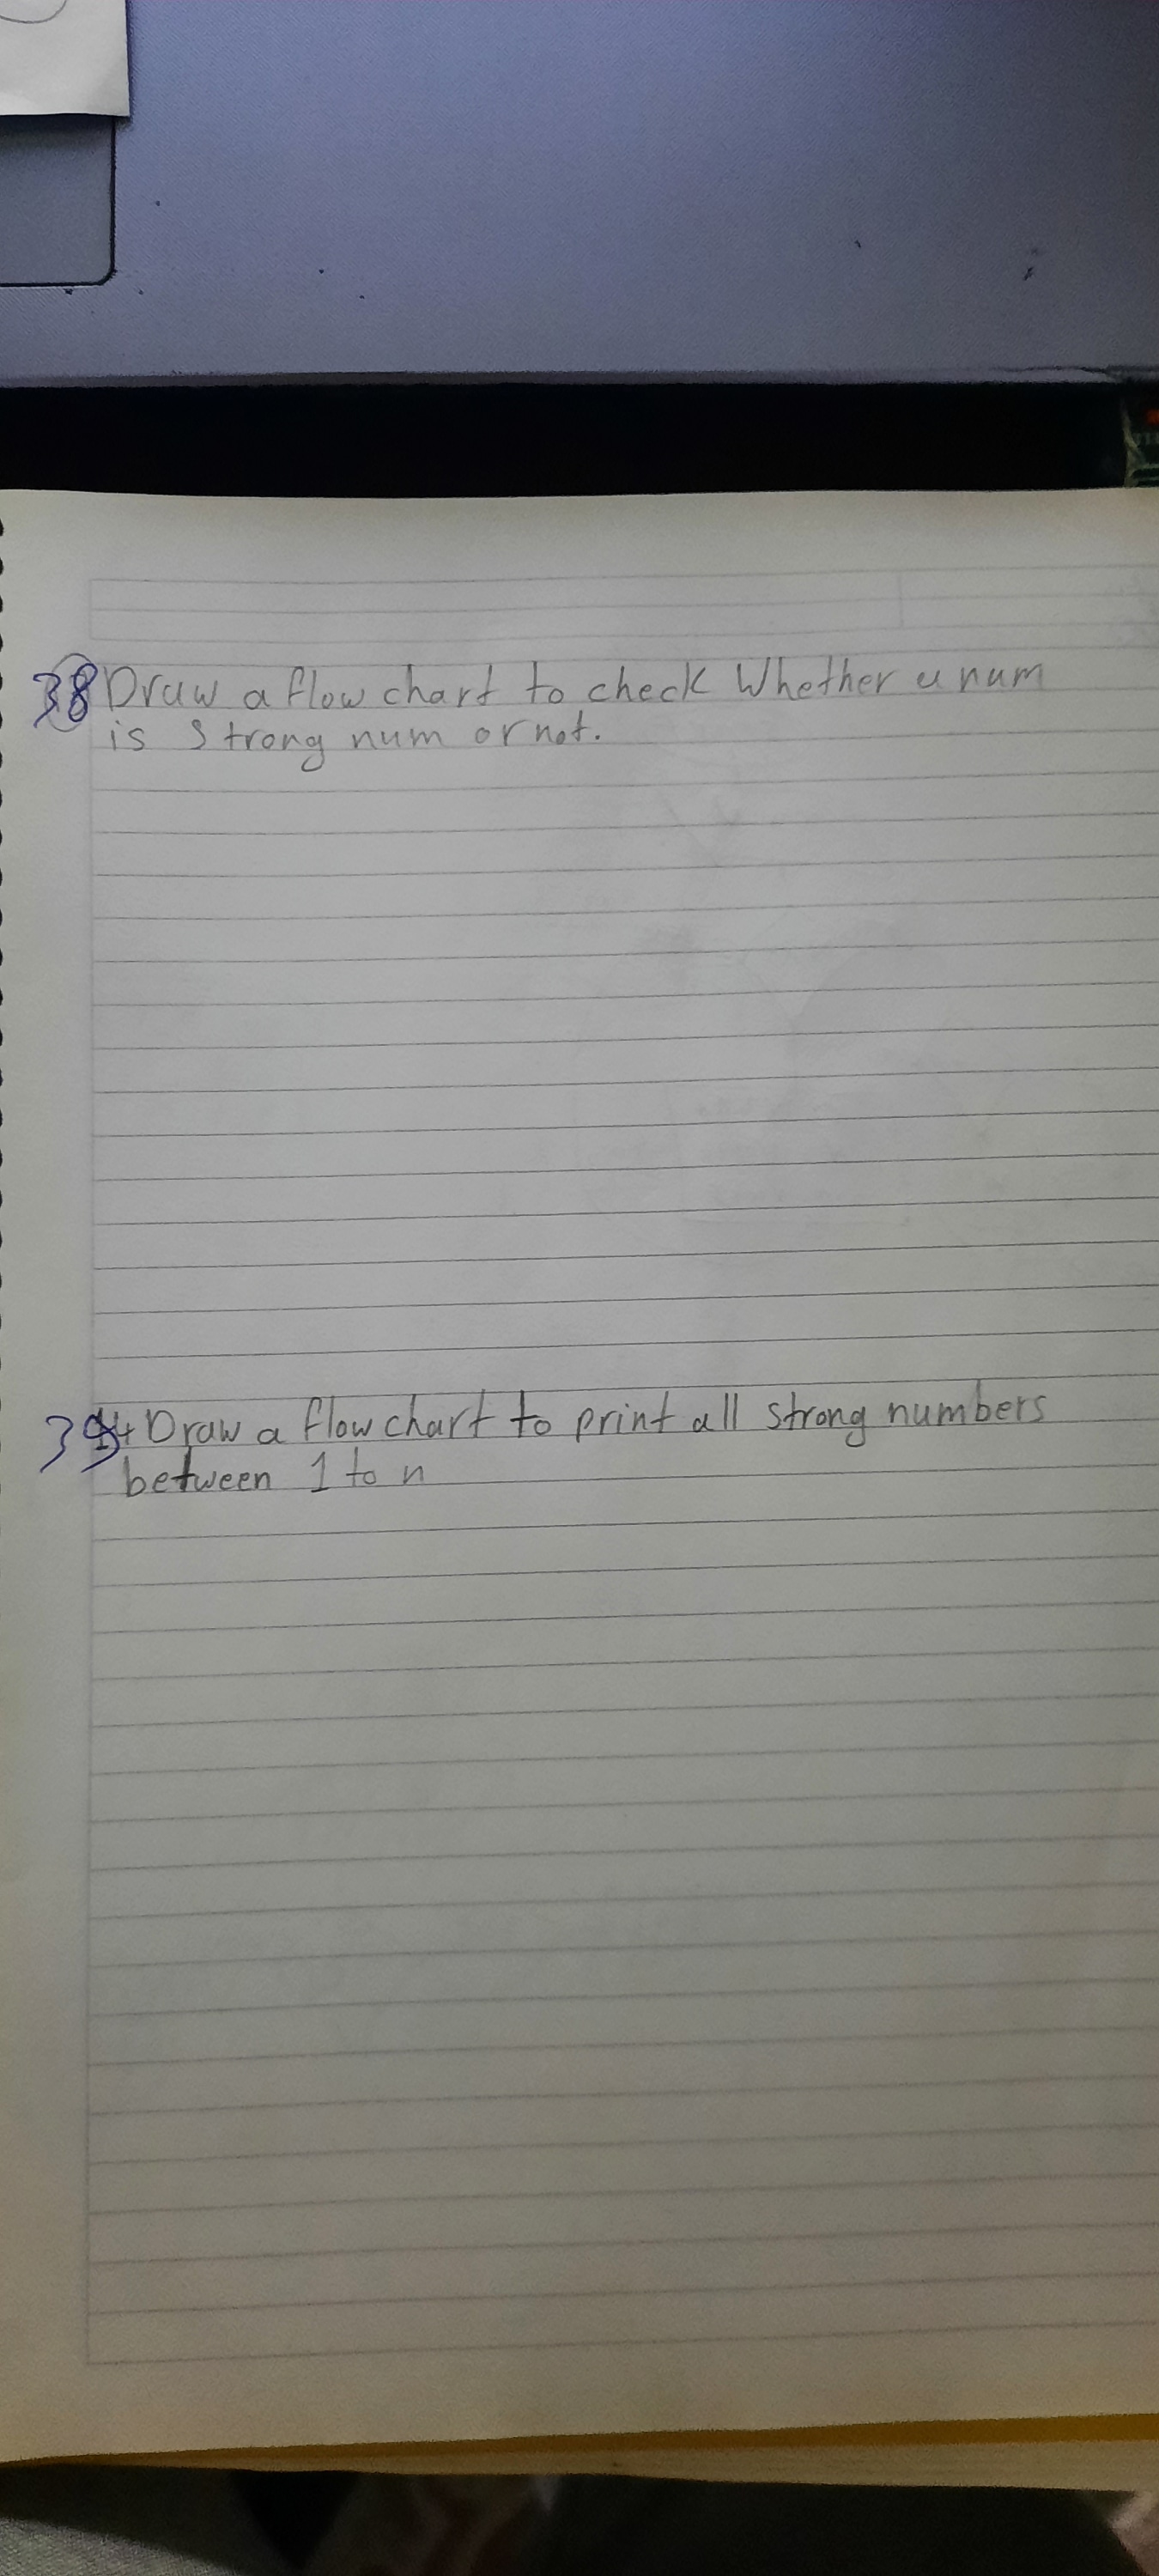 38 Draw a flow chart to check Whether a num
is Strong num or not.
39 Draw a flow chart to print all strong numbers
between 1 to n